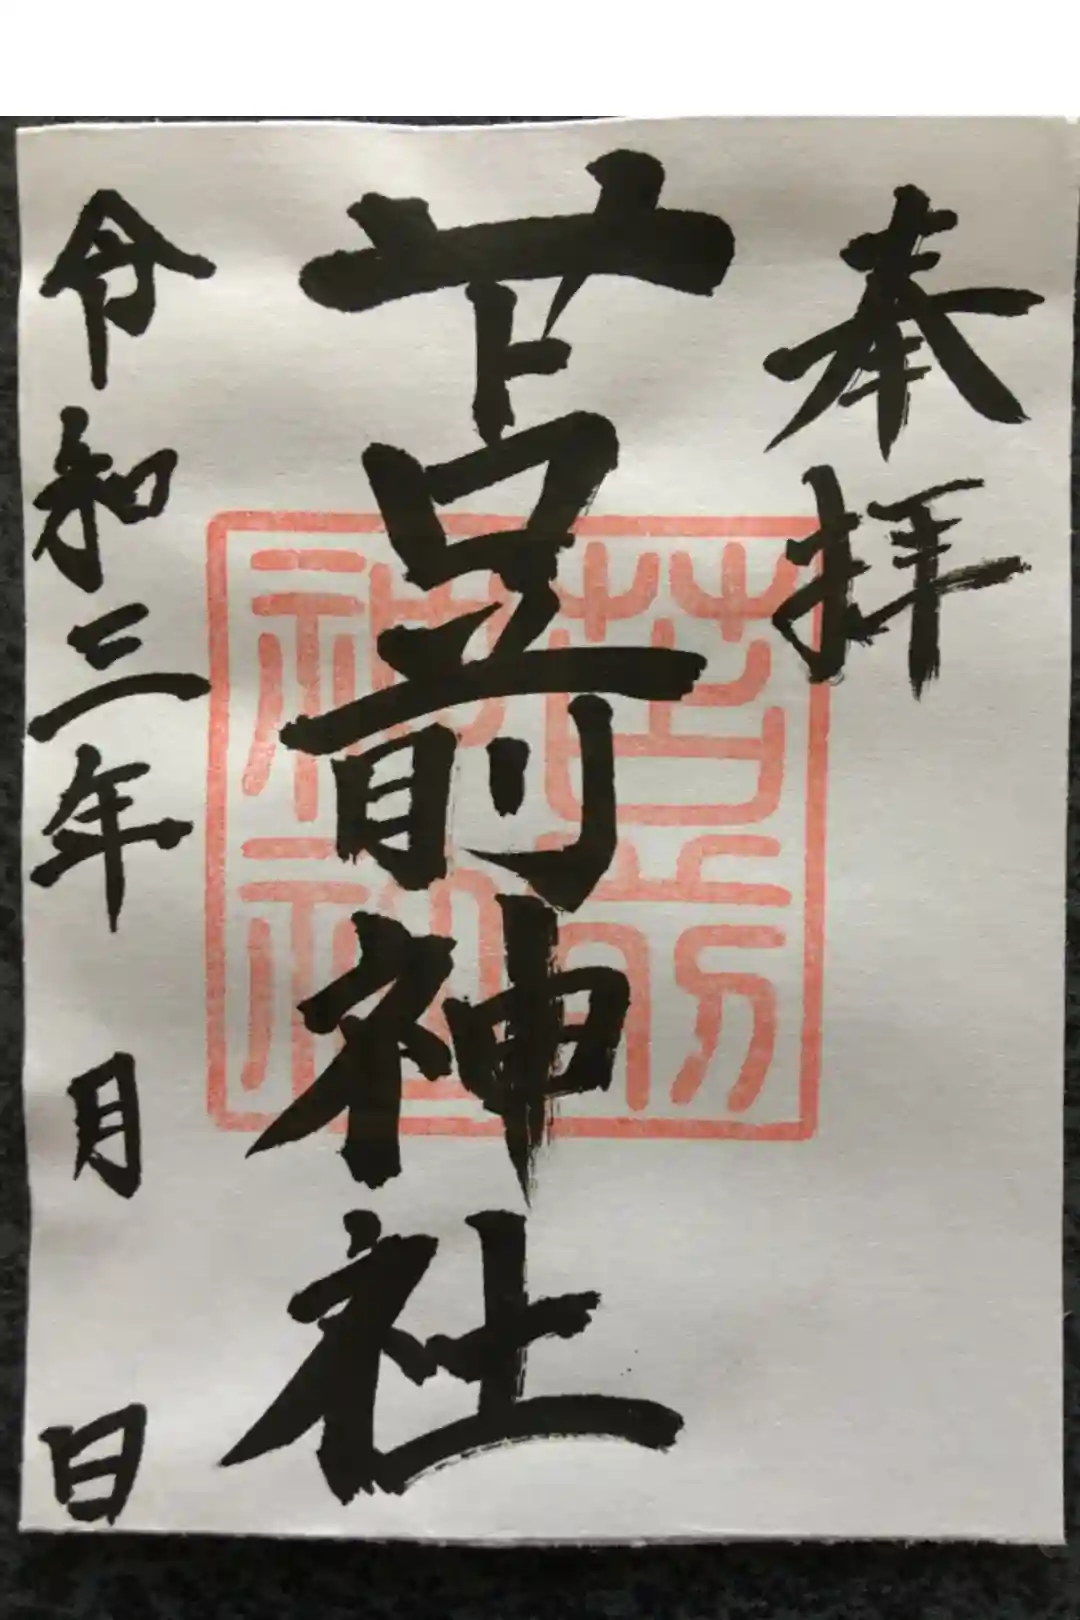 奉拝
苫前神社
令和三年 月 日
苫前
神社